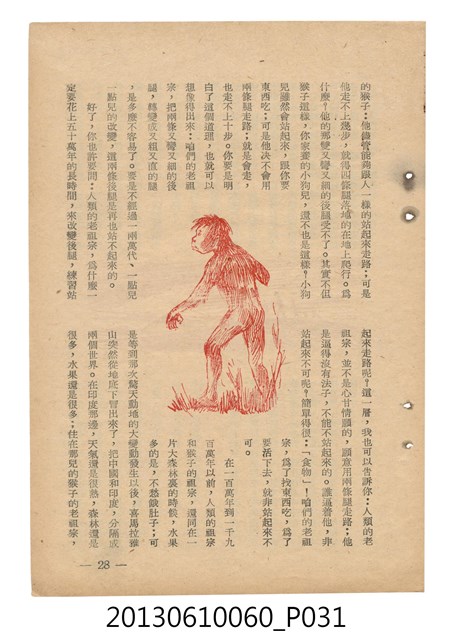 的猴子：他儘管能夠跟人一樣的站起來走路；可是
他走不上幾步，就得四條腿落地的在地上爬行。爲
什麼？他的那雙又彎又細的後腿受不了。其實不但
猴子這樣，你家養的小狗兒，還不也是這樣？小狗
兒雖然會站起來，跟你要
東西吃；可是他決不會用
兩條腿走路；就是會走，
也走不上十步。你要是明
白了這個道理，也就可以
想像得出來：咱們的老祖
宗，把兩條又彎又細的後
腿，轉變成又粗又直的腿
，是多麼不容易了。要是不經過一兩萬代、一點兒
一點兒的改變，這兩條後腿是再也站不起來的。
好了，你也許要問：人類的老祖宗，爲什麼一
定要花上五十萬年的長時間，來改變後腿，練習站
起來走路呢？這一層，我也可以告訴你：人類的老
祖宗，並不是心甘情願的，願意用兩條腿走路；他
是逼得沒有法子，不能不站起來的。誰逼着他，非
站起來不可呢？簡單得很：「食物」！咱們的老祖
宗，爲了找東西吃，爲了
要活下去，就非站起來不
可。
在一百萬年到一千九
百萬年以前，人類的祖宗
和猴子的祖宗，還同在一
片大森林裏的時候，水果
多的是，不愁餓肚子；可
是等到那次驚天動地的大變動發生以後，喜馬拉雅
山突然從地底下冒出來了，把中國和印度，分隔成
兩個世界。在印度那邊，天氣還是很熱，森林還是
很多，水果還是很多：住在那兒的猴子的老祖宗，
— 28 —
20130610060_P031